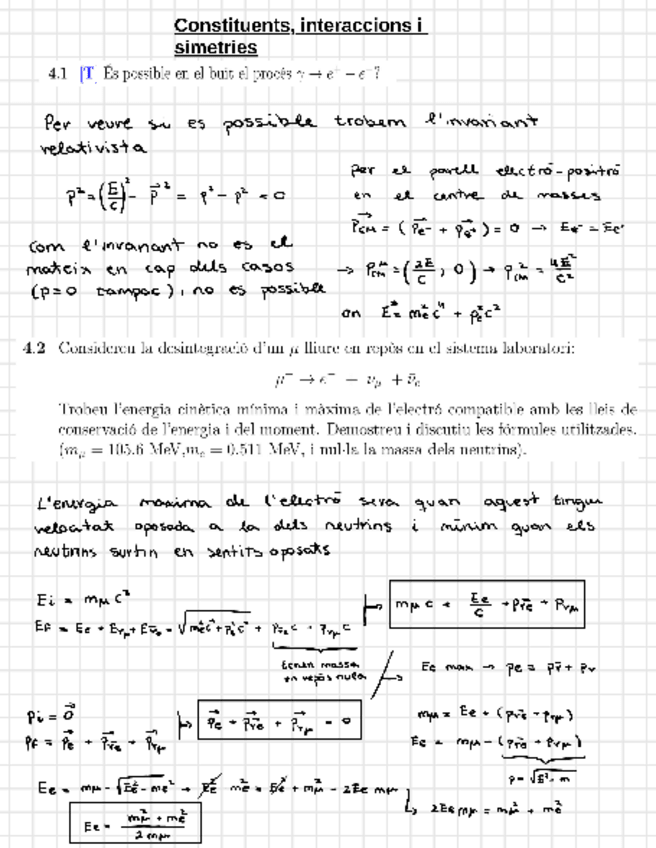 Constituents, interaccions i
simetries
4.1 [T] És possible en el buit el procés γ → e⁺ − e⁻?
Per veure si es possible trobem l'invariant
relativista
p² = (E/c)² − p⃗² = p² − p² = 0
com l'invariant no es el
mateix en cap dels casos
(p=0 tampoc), no es possible
per el parell electró-positró
en el centre de masses
P⃗cm = (p⃗e⁻ + p⃗e⁺) = 0 → Ee⁻ = Ee⁺
→ Pcm^μ = (2E/c, 0) → Pcm² = 4E²/c²
on E² = me²c⁴ + pe²c²
4.2 Considereu la desintegració d'un μ lliure en repòs en el sistema laboratori:
μ⁻ → e⁻ − νμ + ν̄e
Trobeu l'energia cinètica mínima i màxima de l'electró compatible amb les lleis de
conservació de l'energia i del moment. Demostreu i discutiu les fórmules utilitzades.
(mμ = 105.6 MeV, me = 0.511 MeV, i nul·la la massa dels neutrins).
L'energia maxima de l'electró sera quan aquest tingui
velocitat oposada a la dels neutrins i mínim quan els
neutrins surtin en sentits oposats
Ei = mμ c²
EF = Ee + Eνμ + Eν̄e = √(me²c⁴ + pe²c²) + pν̄e c + pνμ c
mμ c = Ee/c + pν̄e + pνμ
tenen massa
en repòs nula
Ee max → pe = pν̄ + pν
pi = 0⃗
pF = p⃗e + p⃗ν̄e + p⃗νμ
p⃗e + p⃗ν̄e + p⃗νμ = 0
mμ = Ee + (pν̄e + pνμ)
Ee = mμ − (pν̄e + pνμ)
p = √(E² − m²)
Ee = mμ − √(Ee² − me²) → Ee² − me² = Ee² + mμ² − 2Ee mμ
↳ 2Ee mμ = mμ² + me²
Ee = (mμ² + me²)/(2mμ)